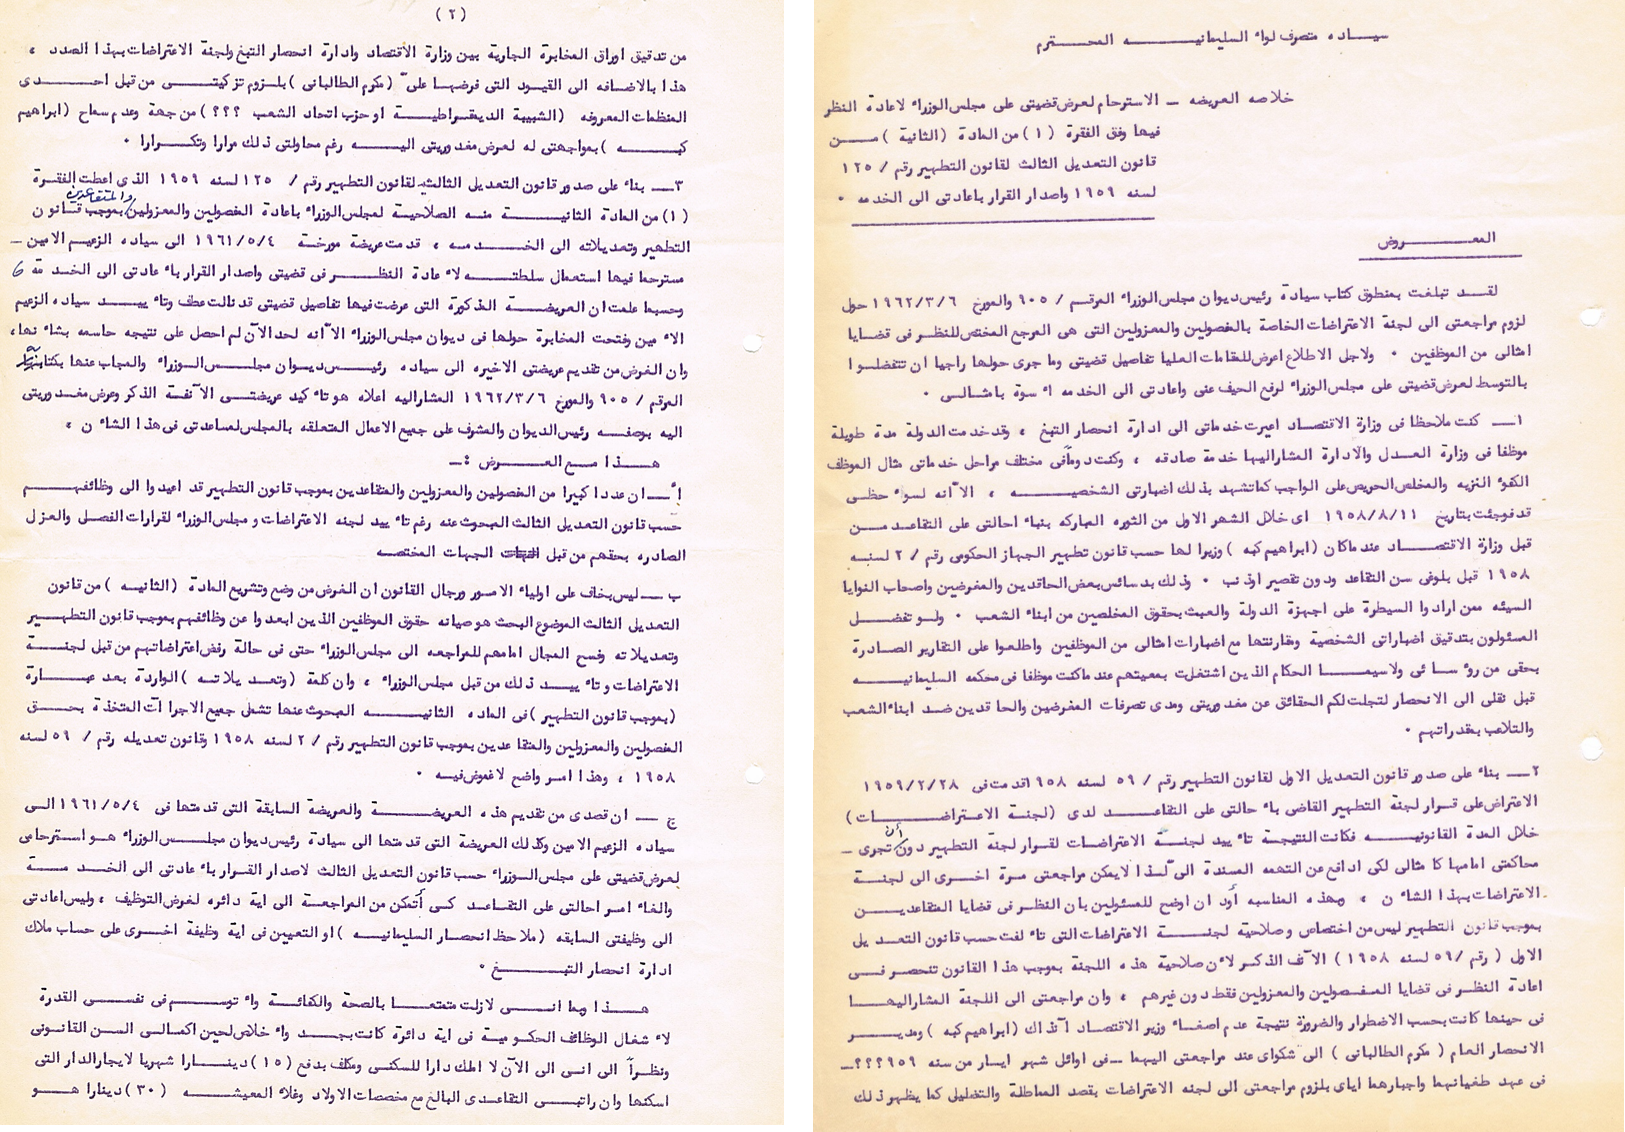 سيـاده متصرف لواء السليمانيـــه المحـــترم
خلاصه العريضه ــ الاسترحام لعرض قضيتي على مجلس الوزراء لاعادة النظر
فيها وفق الفقرة (١) من المادة (الثانية) مــن
قانون التعديل الثالث لقانون التطهير رقم / ١٢٥
لسنه ١٩٥٩ واصدار القرار باعادتي الى الخدمه ٠
المعـــــروض
لقـد تبلغت بمنطوق كتاب سيادة رئيس ديوان مجلس الوزراء المرقـم / ٩٠٥ والمورخ ١٩٦٢/٣/٦ حول
لزوم مراجعتي الى لجنة الاعتراضات الخاصة بالفصولين والمعزولين التي هي المرجع المختص للنظـر في قضـايا
امثالي من الموظفين ٠ ولاجل الاطلاع اعرض للمقامات العليا تفاصيل قضيتي وما جرى حولها راجيا ان تتفضلـوا
بالتوسط لعرض قضيتي على مجلس الوزراء لرفع الحيف عني واعادتي الى الخدمه اسوة بامثـالـي ٠
١ــ كنت ملاحظا في وزارة الاقتصـاد اعيرت خدماتي الى ادارة انحصار التبغ ، وقد خدمت الدولة مدة طويلة
موظفا في وزارة العـدل والادارة المشاراليها خدمة صادقه ، وكنت دوماً في مختلف مراحل خدماتي مثال الموظف
الكفوء النزيه والمخلص الحريص على الواجب كما تشهد بذلك اضبارتي الشخصيـــه ، الا انه لسوء حظـي
قد فوجئت بتاريخ ١٩٥٨/٨/١١ اي خلال الشهر الاول من الثوره المباركه بنباء احالتي على التقاعـد مــن
قبل وزارة الاقتصـاد عند ماكان (ابراهيم كبه) وزيرا لها حسب قانون تطهير الجهاز الحكومي رقم / ٢ لسنـه
١٩٥٨ قبل بلوغي سن التقاعد ودون تقصير او ذنب ٠ وذلك بدسائس بعض الحاقدين والمغرضين واصحاب النوايا
السيئه ممن ارادوا السيطرة على اجهزة الدولة والعبث بحقوق المخلصين من ابناء الشعب ٠ ولـو تفضـــل
المسئولون بتدقيق اضباراتي الشخصية ومقارنتها مع اضبارات امثالي من الموظفين واطلعوا على التقارير الصـادرة
بحقي من روءسائي ولاسيمـا الحكام الذين اشتغلت بمعيتهم عند ماكنت موظفا في محكمه السليمانيـــه
قبل نقلي الى الانحصار لتجلت لكم الحقائق عن مغدوريتي ومدى تصرفات المغرضين والحاقدين ضـد ابناء الشعب
والتلاعب بمقدراتهم ٠
٢ــ بناء على صدور قانون التعديل الاول لقانون التطهير رقم / ٥٩ لسنه ٩٥٨ اقدمت في ١٩٥٩/٢/٢٨
الاعتراض على قـرار لجنة التطهير القاضي باءحالتي على التقاعــد لدى (لجنـة الاعـتراضــات)
خلال المدة القانونيــه فكانت النتيجـة تاءييد لجنـة الاعتراضـات لقـرار لجنة التطهير دون أن تجرى ــ
محاكمتي امامها كامثالي لكي ادافع عن التهمه المسندة اليّ لـذا لايمكن مراجعتي مـرة اخـرى الى لجنـة
الاعتراضات بهـذا الشاءن ، وبهذه المناسبه أود ان اوضح للمسئولين بان النظر في قضايا المتقاعديــن
بموجب قانون التطهير ليس من اختصاص وصلاحية لجنــة الاعتراضات التي تاءلفت حسب قانون التعـديل
الاول (رقم /٥٩ لسنه ١٩٥٨) الآنف الذكـر لاءن صلاحية هذه اللجنة بموجب هذا القانون تنحصر فــي
اعادة النظر في قضايا المفـصولين والمعزولين فقط دون غيرهم ، وان مراجعتي الى اللجنة المشاراليهـا
في حينها كانت بحسب الاضطرار والضرورة نتيجة عدم اصغـاء وزير الاقتصاد آنذاك (ابراهيم كبه) ومديـــر
الانحصار العـام (مكرم الطالباني) الى شكواي عند مراجعتي اليهمـا ــ في اوائل شهر ايـار من سنه ٩٥٩؟؟؟ــ
في عهد طغيانهما واجبارهما اياي بلزوم مراجعتي الى لجنه الاعتراضات بقصد المماطلة والتضليل كما يظهر ذلك
(٢)
من تدقيق اوراق المخابرة الجارية بين وزارة الاقتصاد وادارة انحصار التبغ ولجنة الاعتراضات بهـذا الصدد ،
هذا بالاضافه الى القيـود التي فرضهـا عليّ (مكرم الطالباني) بلـزوم تزكيتـــي من قبل احـــدى
المنظمات المعروفه (الشبيبة الديمقـراطيـــة او حزب اتحاد الشعب ؟؟؟) من جهة وعدم سماح (ابراهيم
كبـــه) بمواجهتي له لعرض مغدوريتي اليـــه رغم محاولتي ذلك مرارا وتكــرارا ٠
٣ــ بناء على صدور قانون التعديل الثالث لقانون التطهير رقم / ١٢٥ لسنه ١٩٥٩ الذي اعطت الفقـرة
(١) من المادة الثانيــــة منـه الصلاحيـة لمجلس الوزراء باعادة الفصولين والمعزولين والمتقاعدين بموجب قـانون
التطهير وتعديلاته الى الخــدمــه ، قدمت عريضة مورخـة ١٩٦١/٥/٤ الى سياده الزعيـم الامين ــ
مسترحما فيها استعمال سلطتــه لاءعادة النظــر في قضيتي واصدار القرار باءعادتي الى الخدمة ،
وحسبما علمت ان العريضــة المذكورة التي عرضت فيها تفاصيل قضيتي قد نالت عطف وتاءييـد سياده الزعيم
الاءمين وفتحت المخابرة حولها في ديوان مجلس الوزراء الا انه لحد الآن لم احصل على نتيجه حاسمه بشاءنها ،
وان الغرض من تقديم عريضتي الاخيره الى سياده رئيـس ديـوان مجلـس الـوزراء والمجاب عنها بكتابه
المرقم / ٩٠٥ والمورخ ١٩٦٢/٣/٦ المشاراليه اعلاه هو تاءكيد عريضتـي الآنفـة الذكر وعرض مغـدوريتي
اليه بوصفـه رئيس الديوان والمشرف على جميع الاعمال المتعلقه بالمجلس لمساعدتي في هذا الشاءن ،
هــذا مـع العــرض :ــ
أ ــ ان عددا كبيرا من الفصولين والمعزولين والمتقاعدين بموجب قانون التطهير قد اعيدوا الى وظائفهــم
حسب قانون التعديل الثالث المبحوث عنه رغم تاءييد لجنه الاعتراضات ومجلس الوزراء لقرارات الفصـل والعـزل
الصادره بحقهم من قبل الجهات المختصـه
ب ــ ليس بخاف على اولياء الامـور ورجال القانون ان الغرض من وضع وتشريع المادة (الثانيـه) من قانون
التعديل الثالث الموضوع البحث هو صيانه حقوق الموظفين الذين ابعدوا عن وظائفهم بموجب قانون التطهـير
وتعديلاته وفسح المجال امامهم للمراجعه الى مجلس الوزراء حتى في حالة رفض اعتراضاتهم من قبل لجنــة
الاعتراضات وتاءييـد ذلك من قبل مجلس الوزراء ، وان كلمة (وتعـديلاتـه) الواردة بعد عبـارة
(بموجب قانون التطهير) في الماده الثانيـــه المبحوث عنها تشمل جميع الاجراآت المتخذة بحـــق
الفصولين والمعزولين والمتقاعدين بموجب قانون التطهير رقم / ٢ لسنه ١٩٥٨ وقانون تعديله رقم / ٥٩ لسنه
١٩٥٨ ، وهذا امـر واضح لاغموض فيـه ٠
ج ــ ان قصدي من تقديم هذه العريضـــة والعريضة السابقة التي قدمتها في ١٩٦١/٥/٤ الـى
سياده الزعيم الامين وكذلك العريضة التي قدمتها الى سيادة رئيس ديوان مجلـس الوزراء هـو استرحامي
لعرض قضيتي على مجلس الـوزراء حسب قانون التعديل الثالث لاصدار القـرار باءعادتي الى الخـدمــة
والغـاء امـر احالتي على التقاعـد كـي أتمكن من المراجعـة الى اية دائره لغرض التوظيف ، وليس اعادتي
الى وظيفتي السابقه (ملاحظ انحصار السليمانيـه) او التعيين في اية وظيفة اخـرى على حساب ملاك
ادارة انحصار التبـــغ ٠
هـــذا وبما انـــي لازلت متمتعــا بالصحة والكفائـة واءتوسـم في نفسـي القدرة
لاءشغال الوظائف الحكـومية في اية دائرة كانت بجــد واءخلاص لحين اكمـالـي السـن القانـوني
ونظـراً الى انـي الى الآن لا املك دارا للسكنـى ومكلف بدفع (١٥) دينـارا شهريا لايجارالدار التي
اسكنها وان راتبـي التقاعـدي البالغ مع مخصصات الاولاد وغلاء المعيشــه (٣٠) دينارا هــو